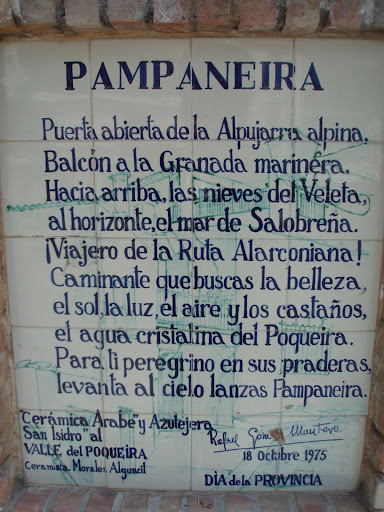 PAMPANEIRA
Puerta abierta de la Alpujarra alpina.
Balcón a la Granada marinera.
Hacia arriba, las nieves del Veleta,
al horizonte, el mar de Salobreña.
¡Viajero de la Ruta Alarconiana!
Caminante que buscas la belleza,
el sol, la luz, el aire y los castaños,
el agua cristalina del Poqueira.
Para ti peregrino en sus praderas,
levanta al cielo lanzas Pampaneira.
"Cerámica Arabe" y Azulejera
San Isidro" al
VALLE del POQUEIRA
Ceramista. Morales Alguacil
Rafael Gómez Montero
18 Octubre 1975
DÍA de la PROVINCIA